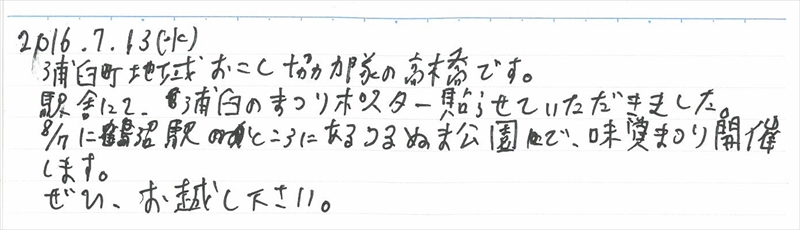 2016.7.13(水)
浦臼町地域おこし協力隊の高橋です。
駅舎にて、浦臼のまつりポスター貼らせていただきました。
8/7に鶴沼駅のところにあるつるぬま公園で、味覚まつり開催
します。
ぜひ、お越し下さい。